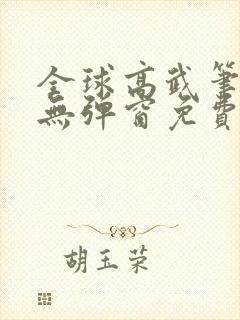 全球高武筆
無彈窗免費
胡玉荣